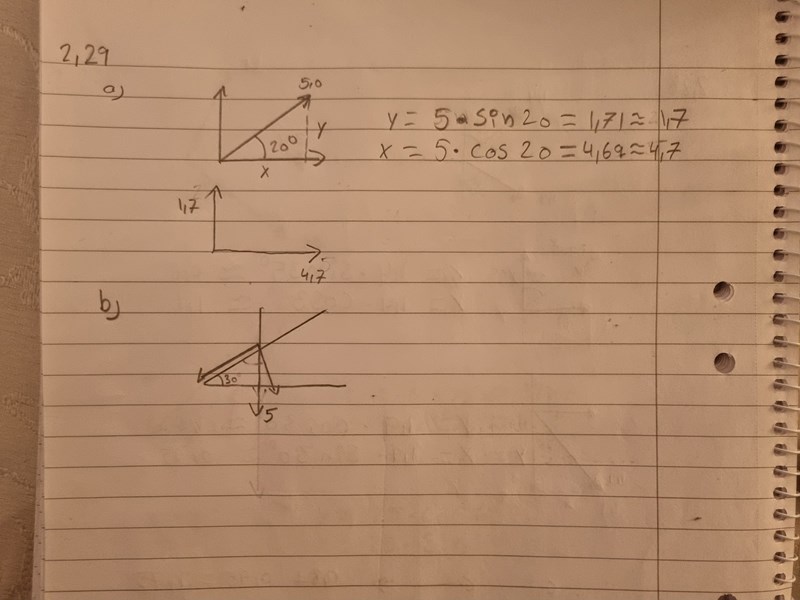 2,29
a)
5,0
y = 5 • sin 20 = 1,71 ≈ 1,7
y
20°
x = 5 • cos 20 = 4,69 ≈ 4,7
x
1,7
4,7
b)
30
5